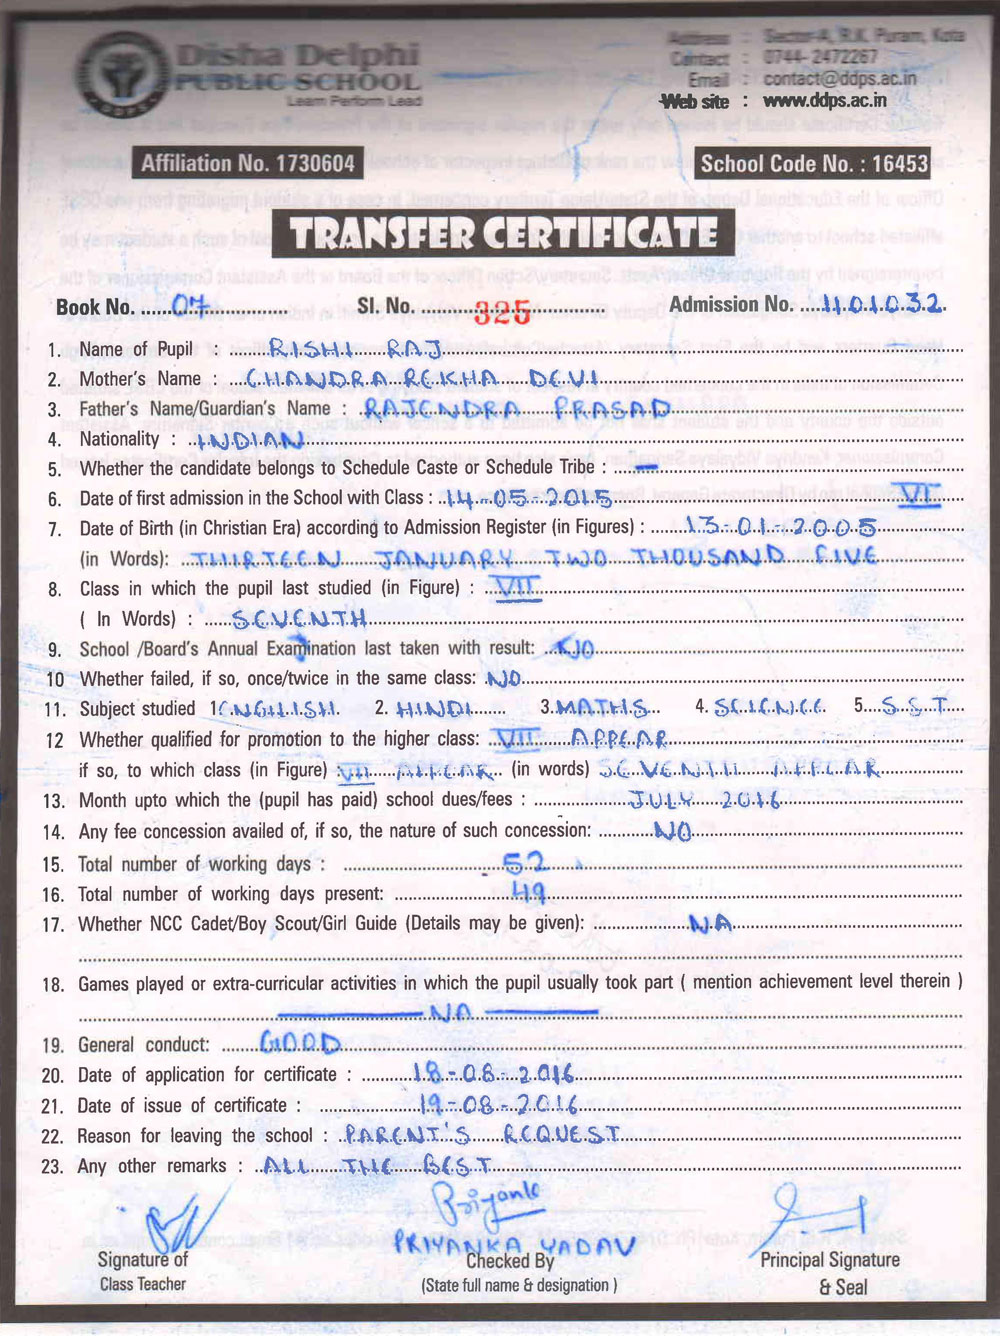 Disha Delphi
PUBLIC SCHOOL
Learn Perform Lead
Address : Sector-A, R.K. Puram, Kota
Contact : 0744-2472267
Email : contact@ddps.ac.in
Web site : www.ddps.ac.in
Affiliation No. 1730604
School Code No. : 16453
TRANSFER CERTIFICATE
Book No. 07 Sl. No. 325 Admission No. 1101032
1. Name of Pupil : RISHI RAJ
2. Mother's Name : CHANDRA REKHA DEVI
3. Father's Name/Guardian's Name : RAJENDRA PRASAD
4. Nationality : INDIAN
5. Whether the candidate belongs to Schedule Caste or Schedule Tribe : —
6. Date of first admission in the School with Class : 14-05-2015 VI
7. Date of Birth (in Christian Era) according to Admission Register (in Figures) : 13-01-2005
(in Words): THIRTEEN JANUARY TWO THOUSAND FIVE
8. Class in which the pupil last studied (in Figure) : VII
( In Words) : SEVENTH
9. School /Board's Annual Examination last taken with result: NO
10 Whether failed, if so, once/twice in the same class: NO
11. Subject studied 1. ENGLISH 2. HINDI 3. MATHS 4. SCIENCE 5. S.S.T
12 Whether qualified for promotion to the higher class: VII APPEAR
if so, to which class (in Figure) VII APPEAR (in words) SEVENTH APPEAR
13. Month upto which the (pupil has paid) school dues/fees : JULY 2016
14. Any fee concession availed of, if so, the nature of such concession: NO
15. Total number of working days : 52
16. Total number of working days present: 49
17. Whether NCC Cadet/Boy Scout/Girl Guide (Details may be given): NA
18. Games played or extra-curricular activities in which the pupil usually took part ( mention achievement level therein )
— NA —
19. General conduct: GOOD
20. Date of application for certificate : 18-08-2016
21. Date of issue of certificate : 19-08-2016
22. Reason for leaving the school : PARENT'S REQUEST
23. Any other remarks : ALL THE BEST
Priyanka
PRIYANKA YADAV
Signature of
Class Teacher
Checked By
(State full name & designation )
Principal Signature
& Seal